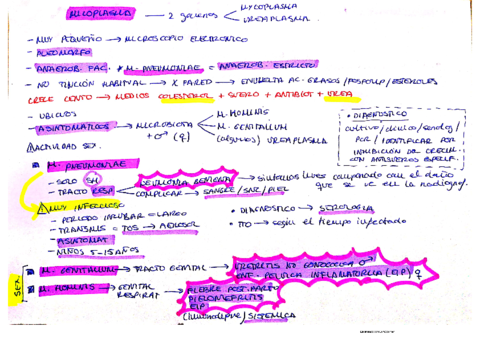 MICOPLASMA → 2 géneros
MYCOPLASMA
UREAPLASMA
- MUY PEQUEÑO → MICROSCOPIO ELECTRONICO
- PLEOMORFO
- ANAEROB. FAC. * M. PNEUMONIAE = ANAEROB. ESTRICTO
- NO TINCIÓN HABITUAL → X PARED → ENVUELTA AC. GRASOS/FOSFOLIP/ESTEROLES
CRECE LENTO → MEDIOS COLESTEROL + SUERO + ANTIBIOT + UREA
- UBICUOS
- ASINTOMATICOS → MICROBIOTA + ♂ (♀)
M. HOMINIS
M. GENITALIUM
(algunos) UREAPLASMA
ACTIVIDAD SEX.
• DIAGNOSTICO
cultivo/clinico/serolog/
PCR / IDENTIFICAR POR
INHIBICION DE CRECIM.
CON ANTISUEROS ESPECIF.
M. PNEUMONIAE
- SOLO SH
- TRACTO RESP
NEUMONIA ATIPICA → síntomas leves comparado con el daño
que se ve en la radiograf.
COMPLICAR → SANGRE/SNC/PIEL
MUY INFECCIOSO
- PERIODO INCUBAC = LARGO
- TRANSMIS = TOS → AEROSOL
- ASINTOMAT
- NIÑOS 5-15 AÑOS
• DIAGNOSTICO → SEROLOGIA
• TTO → según el tiempo infectado
SEX.
M. GENITALIUM → TRACTO GENITAL → URETRITIS NO GONOCOCICA ♂
ENF. PELVICA INFLAMATORIA (EIP) ♀
M. HOMINIS → GENITAL
RESPIRAT
FIEBRE POST-PARTO
PIELONEFRITIS
EIP
(inmunodepre/SISTEMICA